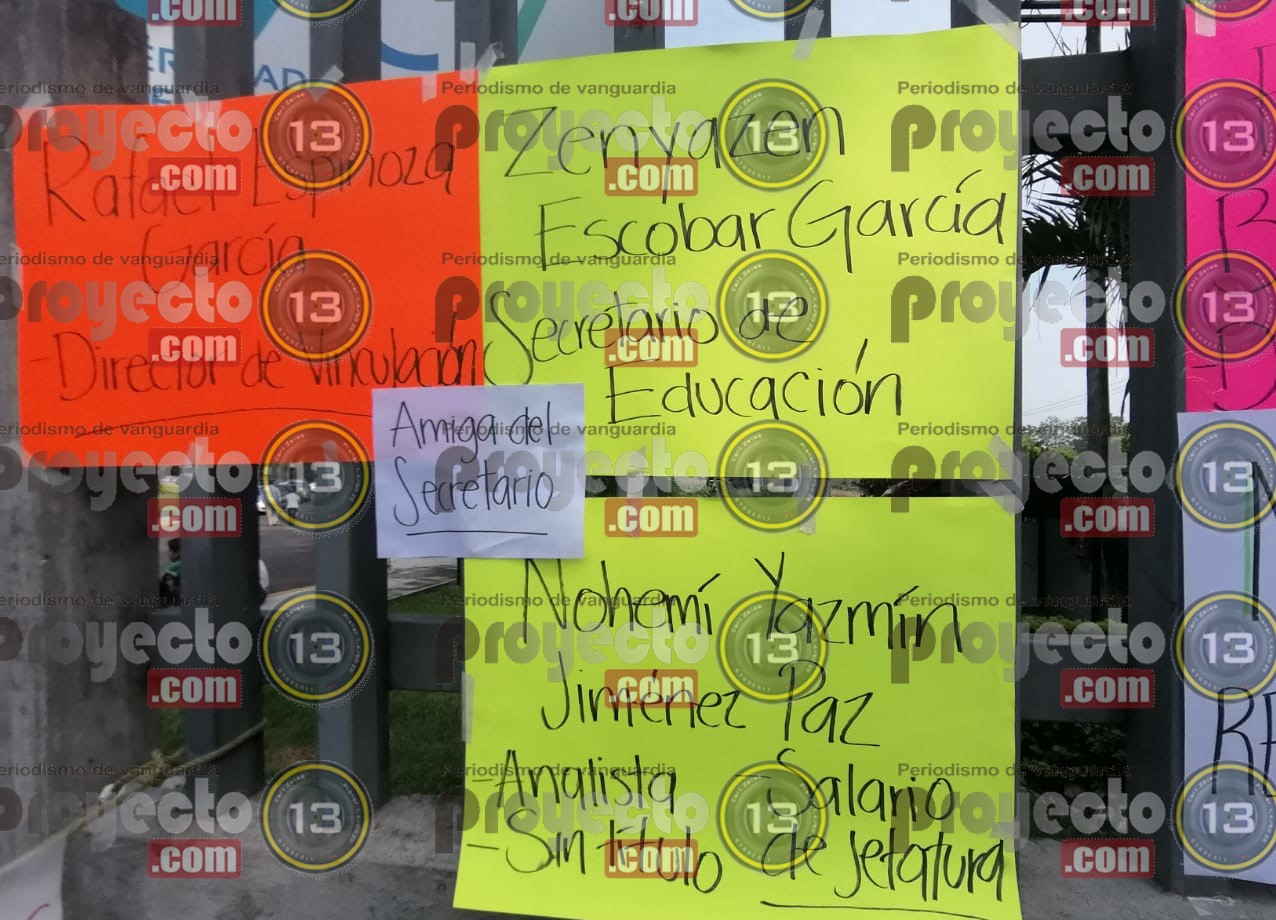 Rafael Espinoza
García
-Director de Vinculación
Zenyazen
Escobar García
Secretario de
Educación
Amiga del
Secretario
Nohemí Yazmín
Jiménez Paz
-Analista
-Sin título
-Salario
de jefatura
Periodismo de vanguardia
proyecto 13
.com